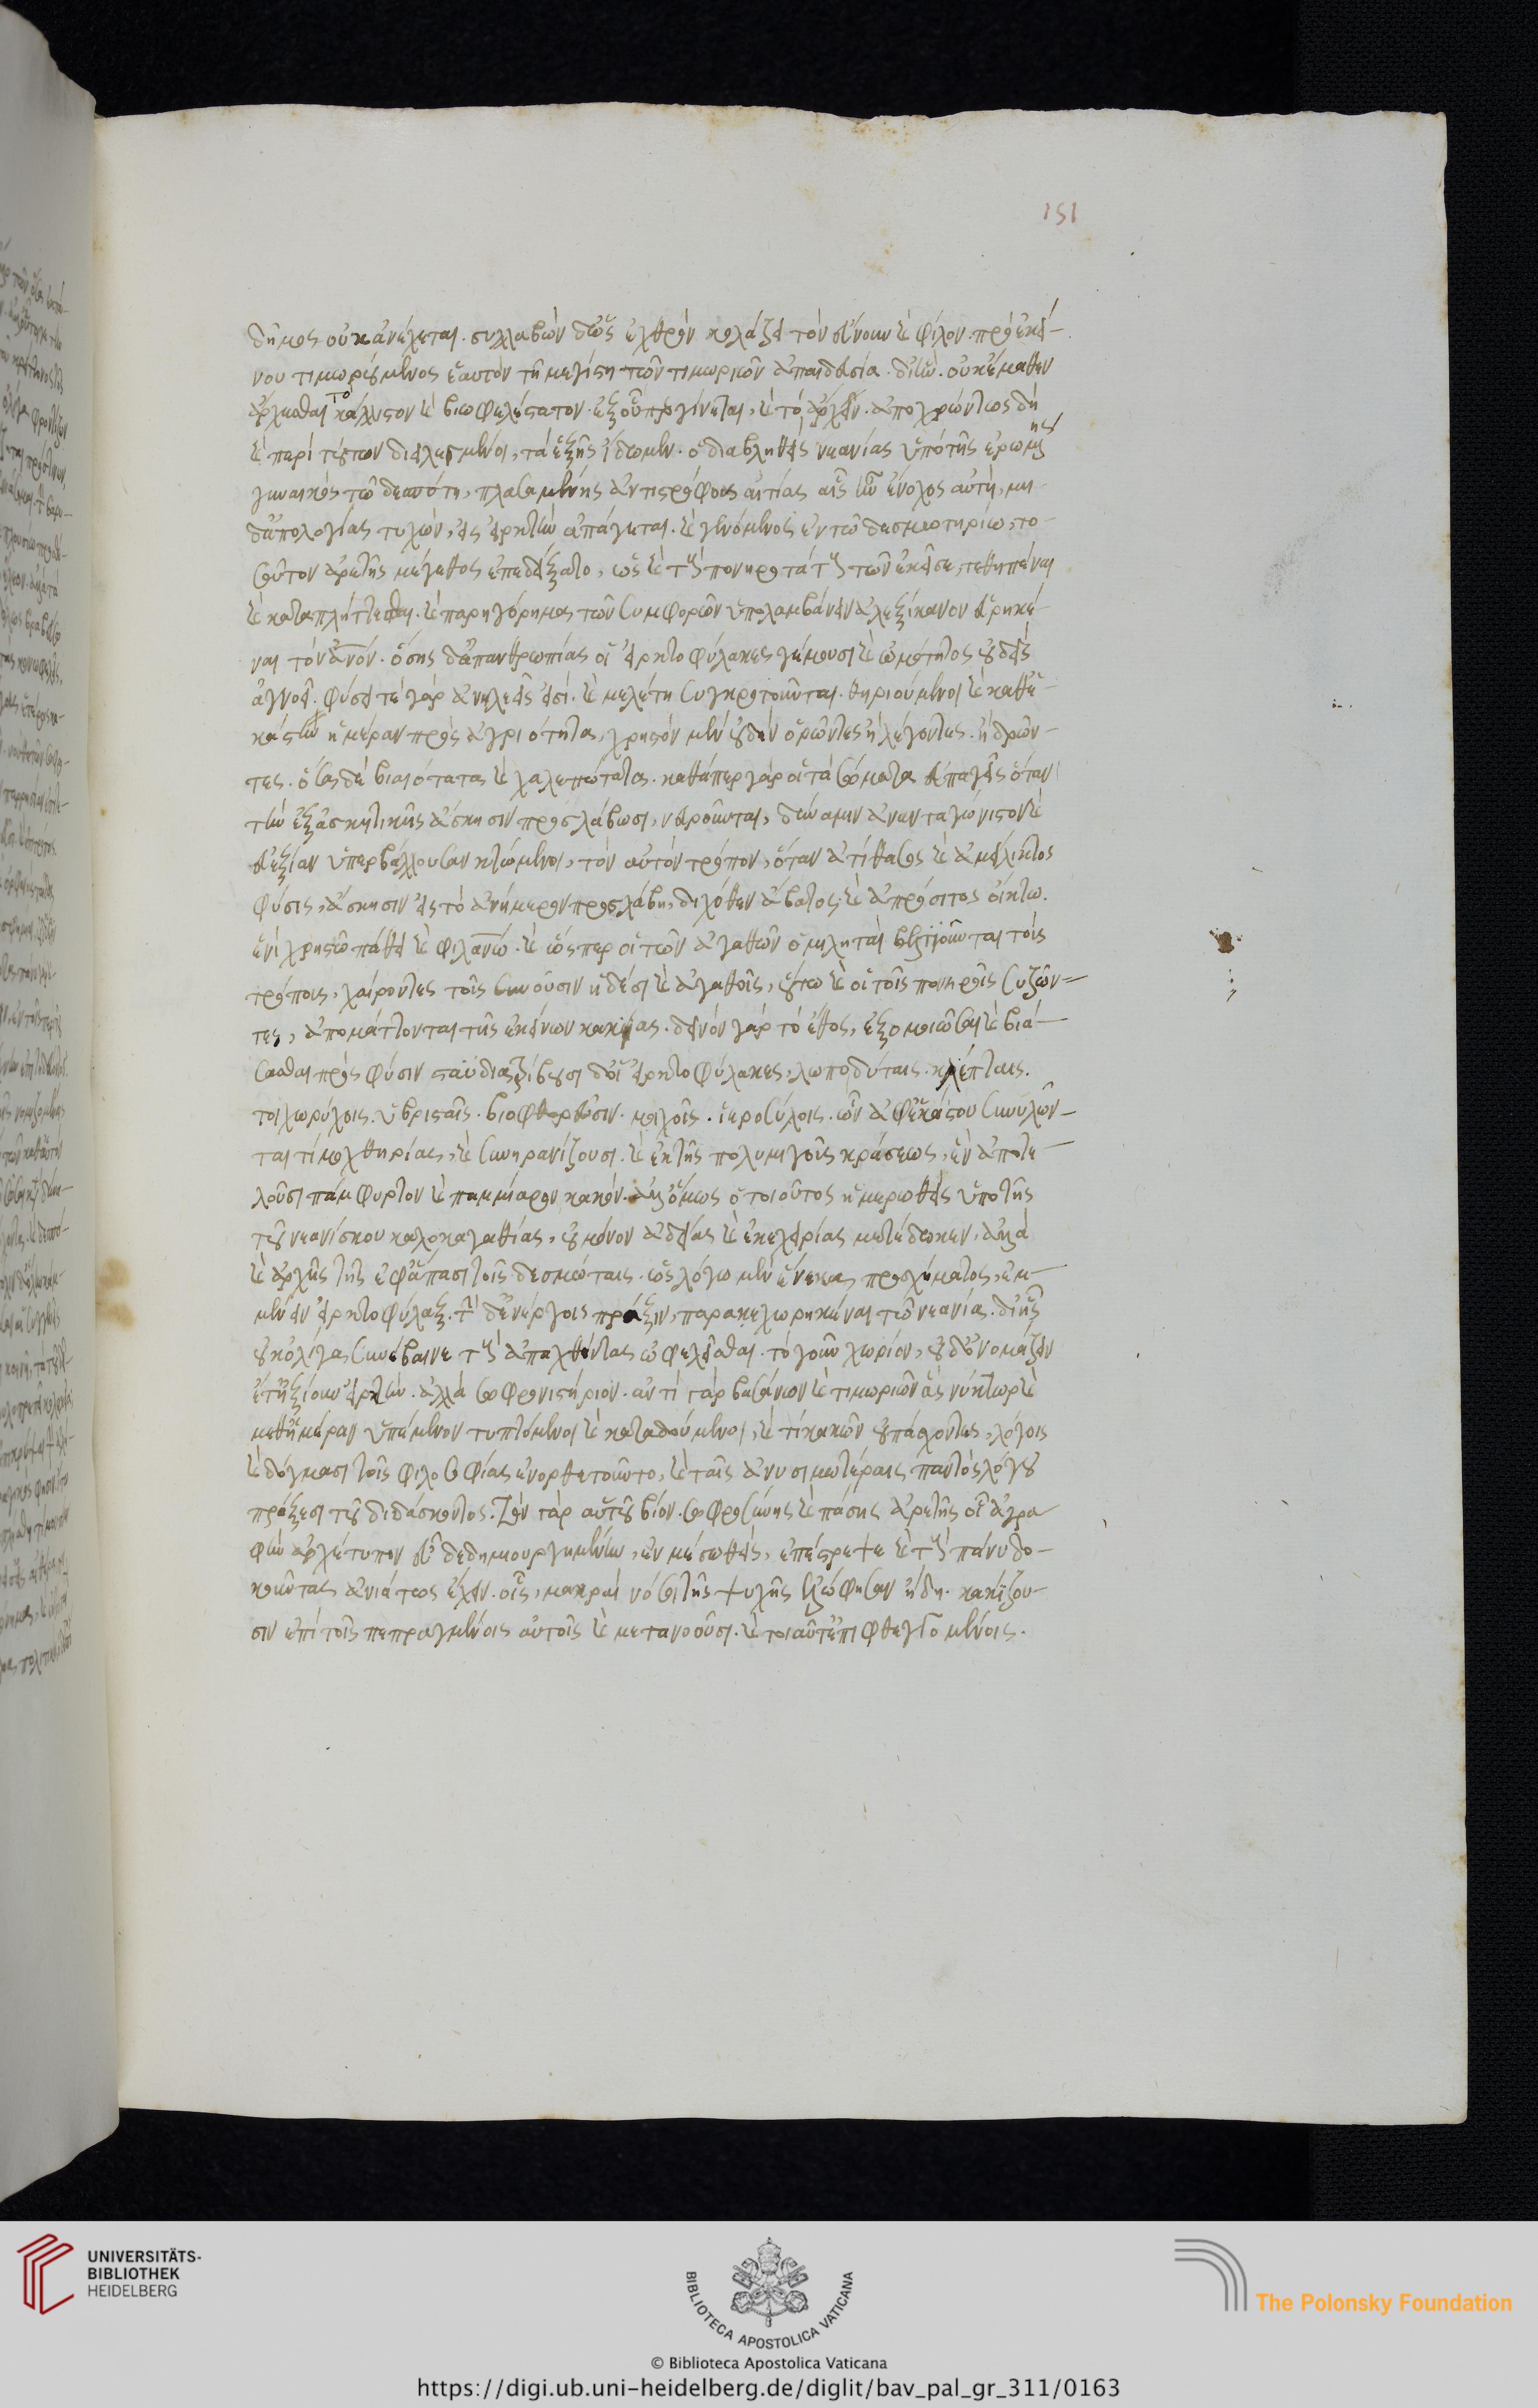 δῆμος οὐκ ἀνέχεται. συλλαβὼν δ' ὡς ἐχθρὸν κολάζει τὸν εὔνουν καὶ φίλον. πρὸ ἐκεί-
νου τιμωρησάμενος ἑαυτὸν τῆ μεγίστη τῶν τιμωριῶν ἀπαιδευσία. δι' ἣν οὐκ ἔμαθεν
ἄρχεσθαι τὸ κάλλιστον καὶ βιωφελέστατον. ἐξ οὗ περιγίνεται, καὶ τὸ ἄρχειν. ἀποχρώντως δὴ
καὶ περὶ τούτων διειλεγμένοι, τὰ ἑξῆς ἴδωμεν. ὁ διαβληθεὶς νεανίας ὑπὸ τῆς ἐρωμένης
γυναικὸς τῶ δεσπότη, πλασαμένης ἀντιστρόφους αἰτίας αἷς ἦν ἔνοχος αὐτή, μη-
δ' ἀπολογίας τυχών, εἰς εἱρκτὴν ἀπάγεται. καὶ γενόμενος ἐν τῶ δεσμωτηρίω, το-
σοῦτον ἀρετῆς μέγεθος ἐπεδείξατο, ὡς καὶ τοὺς πονηροτάτους τῶν ἐκεῖσε, τεθηπέναι
καὶ καταπλήττεσθαι. καὶ παρηγόρημα τῶν συμφορῶν ὑπολαμβάνειν ἀλεξίκακον εὑρηκέ-
ναι τὸν ἄνον. ὅσης δ' ἀπανθρωπίας οἱ εἱρκτοφύλακες γέμουσι καὶ ὠμότητος οὐδεὶς
ἀγνοεῖ. φύσει τὲ γὰρ ἀνηλεεῖς εἰσί. καὶ μελέτη συγκροτοῦνται. θηριούμενοι καὶ καθ' ἑ-
κάστην ἡμέραν πρὸς ἀγριότητα, χρηστὸν μὲν οὐδὲν ὁρῶντες ἢ λέγοντες. ἢ δρῶν-
τες. ὅσα δὲ βιαιότατα καὶ χαλεπώτατα. καθάπερ γὰρ οἱ τὰ σώματα εὐπαγεῖς ὅταν
τὴν ἐξ ἀσκητικῆς ἄσκησιν προσλάβωσι, νευροῦνται, δύναμιν ἀνανταγώνιστον καὶ
εὐεξίαν ὑπερβάλλουσαν κτώμενοι, τὸν αὐτὸν τρόπον, ὅταν ἀτίθασος καὶ ἀμείλικτος
φύσις, ἄσκησιν εἰς τὸ ἀνήμερον προσλάβη, διχόθεν ἄβατος καὶ ἀπρόσιτος οἴκτω.
ἑνὶ χρηστῶ πάθει καὶ φιλανω. καὶ ὥσπερ οἱ τῶν ἀγαθῶν ὁμιληταὶ βελτιοῦνται τοὺς
τρόπους, χαίροντες τοῖς συνοῦσιν ἡδέσι καὶ ἀγαθοῖς, οὕτω καὶ οἱ τοῖς πονηροῖς συζῶν-
τες, ἀπομάττονται τῆς ἐκείνων κακίας. δεινὸν γὰρ τὸ ἔθος, ἐξομοιῶσαι καὶ βιά-
σασθαι πρὸς φύσιν συνδιατρίβουσι δ' οἱ εἱρκτοφύλακες, λωποδύταις. κλέπταις.
τοιχωρύχοις. ὑβρισταῖς. βιοφθορεῦσιν. μοιχοῖς. ἱεροσύλοις. ὧν ἀφ' ἑκάστου συνέλκον-
ται τὶ μοχθηρίας, καὶ συνηρανίζουσι. καὶ ἐκ τῆς πολυμιγοῦς κράσεως, ἓν ἀποτε-
λοῦσι πάμφυρτον καὶ παμμίαρον κακόν. ἀλλ' ὅμως ὁ τοιοῦτος ἡμερωθεὶς ὑπὸ τῆς
τοῦ νεανίσκου καλοκαγαθίας, οὐ μόνον ἀδείας καὶ ἐκεχειρίας μετέδωκεν, ἀλλὰ
καὶ ἀρχῆς τῆς ἐφ' ἅπασι τοῖς δεσμώταις. ὡς λόγω μὲν ἕνεκα προσχήματος, ἐμ-
μένειν εἱρκτοφύλαξ. τὴν δ' ἐν ἔργοις πρᾶξιν, παρακεχωρηκέναι τῶ νεανία. δι' ἧς
οὐκ ὀλίγα συνέβαινε τοὺς ἀπαχθέντας ὠφελεῖσθαι. τὸ γοῦν χωρίον, οὐδ' ὀνομάζειν
ἔτ' ἠξίουν εἱρκτήν. ἀλλὰ σωφρονιστήριον. ἀντὶ γὰρ βασάνων καὶ τιμωριῶν ἃς νύκτωρ καὶ
μεθ' ἡμέραν ὑπέμενον τυπτόμενοι καὶ καταδούμενοι, καὶ τί κακῶν οὐ πάσχοντες, λόγοις
καὶ δόγμασι τοῖς φιλοσοφίας ἐνουθετοῦντο, καὶ ταῖς ἀνυσιμωτέραις παντὸς λόγου
πράξεσι τοῦ διδάσκοντος. τὸν γὰρ αὑτοῦ βίον. σωφροσύνης καὶ πάσης ἀρετῆς οἷα γρα-
φὴν ἀρχέτυπον εὖ δεδημιουργημένην, ἐν μέσω θείς, ἐπέστρεψε καὶ τοὺς πάνυ δο-
κοῦντας ἀνιάτως ἔχειν. οἷς, μακραὶ νόσοι τῆς ψυχῆς ἐλώφησαν ἤδη. κακίζου-
σιν ἐπὶ τοῖς πεπραγμένοις αὑτοὺς καὶ μετανοοῦσι. καὶ τοιαῦτ' ἐπιφθεγγομένοις.
151
UNIVERSITÄTS-
BIBLIOTHEK
HEIDELBERG
BIBLIOTECA APOSTOLICA VATICANA
The Polonsky Foundation
© Biblioteca Apostolica Vaticana
https://digi.ub.uni-heidelberg.de/diglit/bav_pal_gr_311/0163